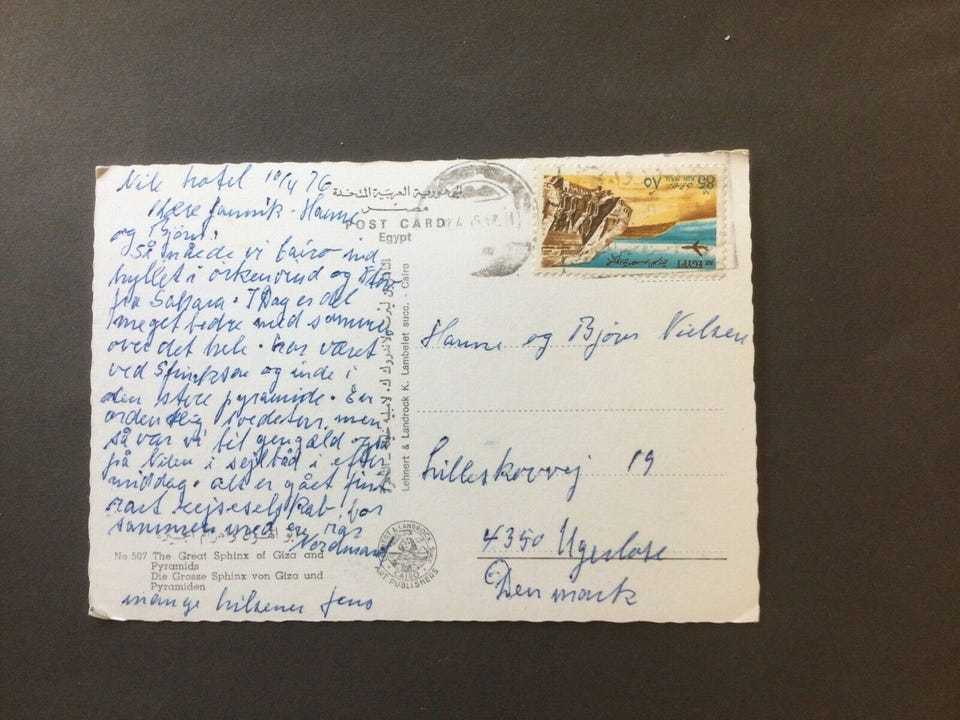 Nile hotel 10/4 76
Kære Jannik - Hanne
og Bjørn.
Så nåede vi Cairo ind
hyllet i ørkenvind og støv
fra Sahara. I Dag er det
meget bedre med somme
over det hele. har været
ved Sfinksen og inde i
den store pyramide. En
ordentlig svedetur, men
så var vi til gengæld også
på Nilen i sejlbåd i efter
middag. alt er gået fint
rart rejseselskab for
sammen med en rar
Nordmand
mange hilsener Jens
No 507 The Great Sphinx of Giza and
Pyramids
Die Grosse Sphinx von Giza und
Pyramiden
الجمهورية العربية المتحدة
مصر
POST CARD
Egypt
Lehnert & Landrock K. Lambelet succ. - Cairo
LEHNERT & LANDROCK
CAIRO
ART PUBLISHERS
85
٨٥
AIR MAIL
A.R. EGYPT
Hanne og Bjørn Nielsen
Lilleskovvej 19
4350 Ugerløse
Denmark